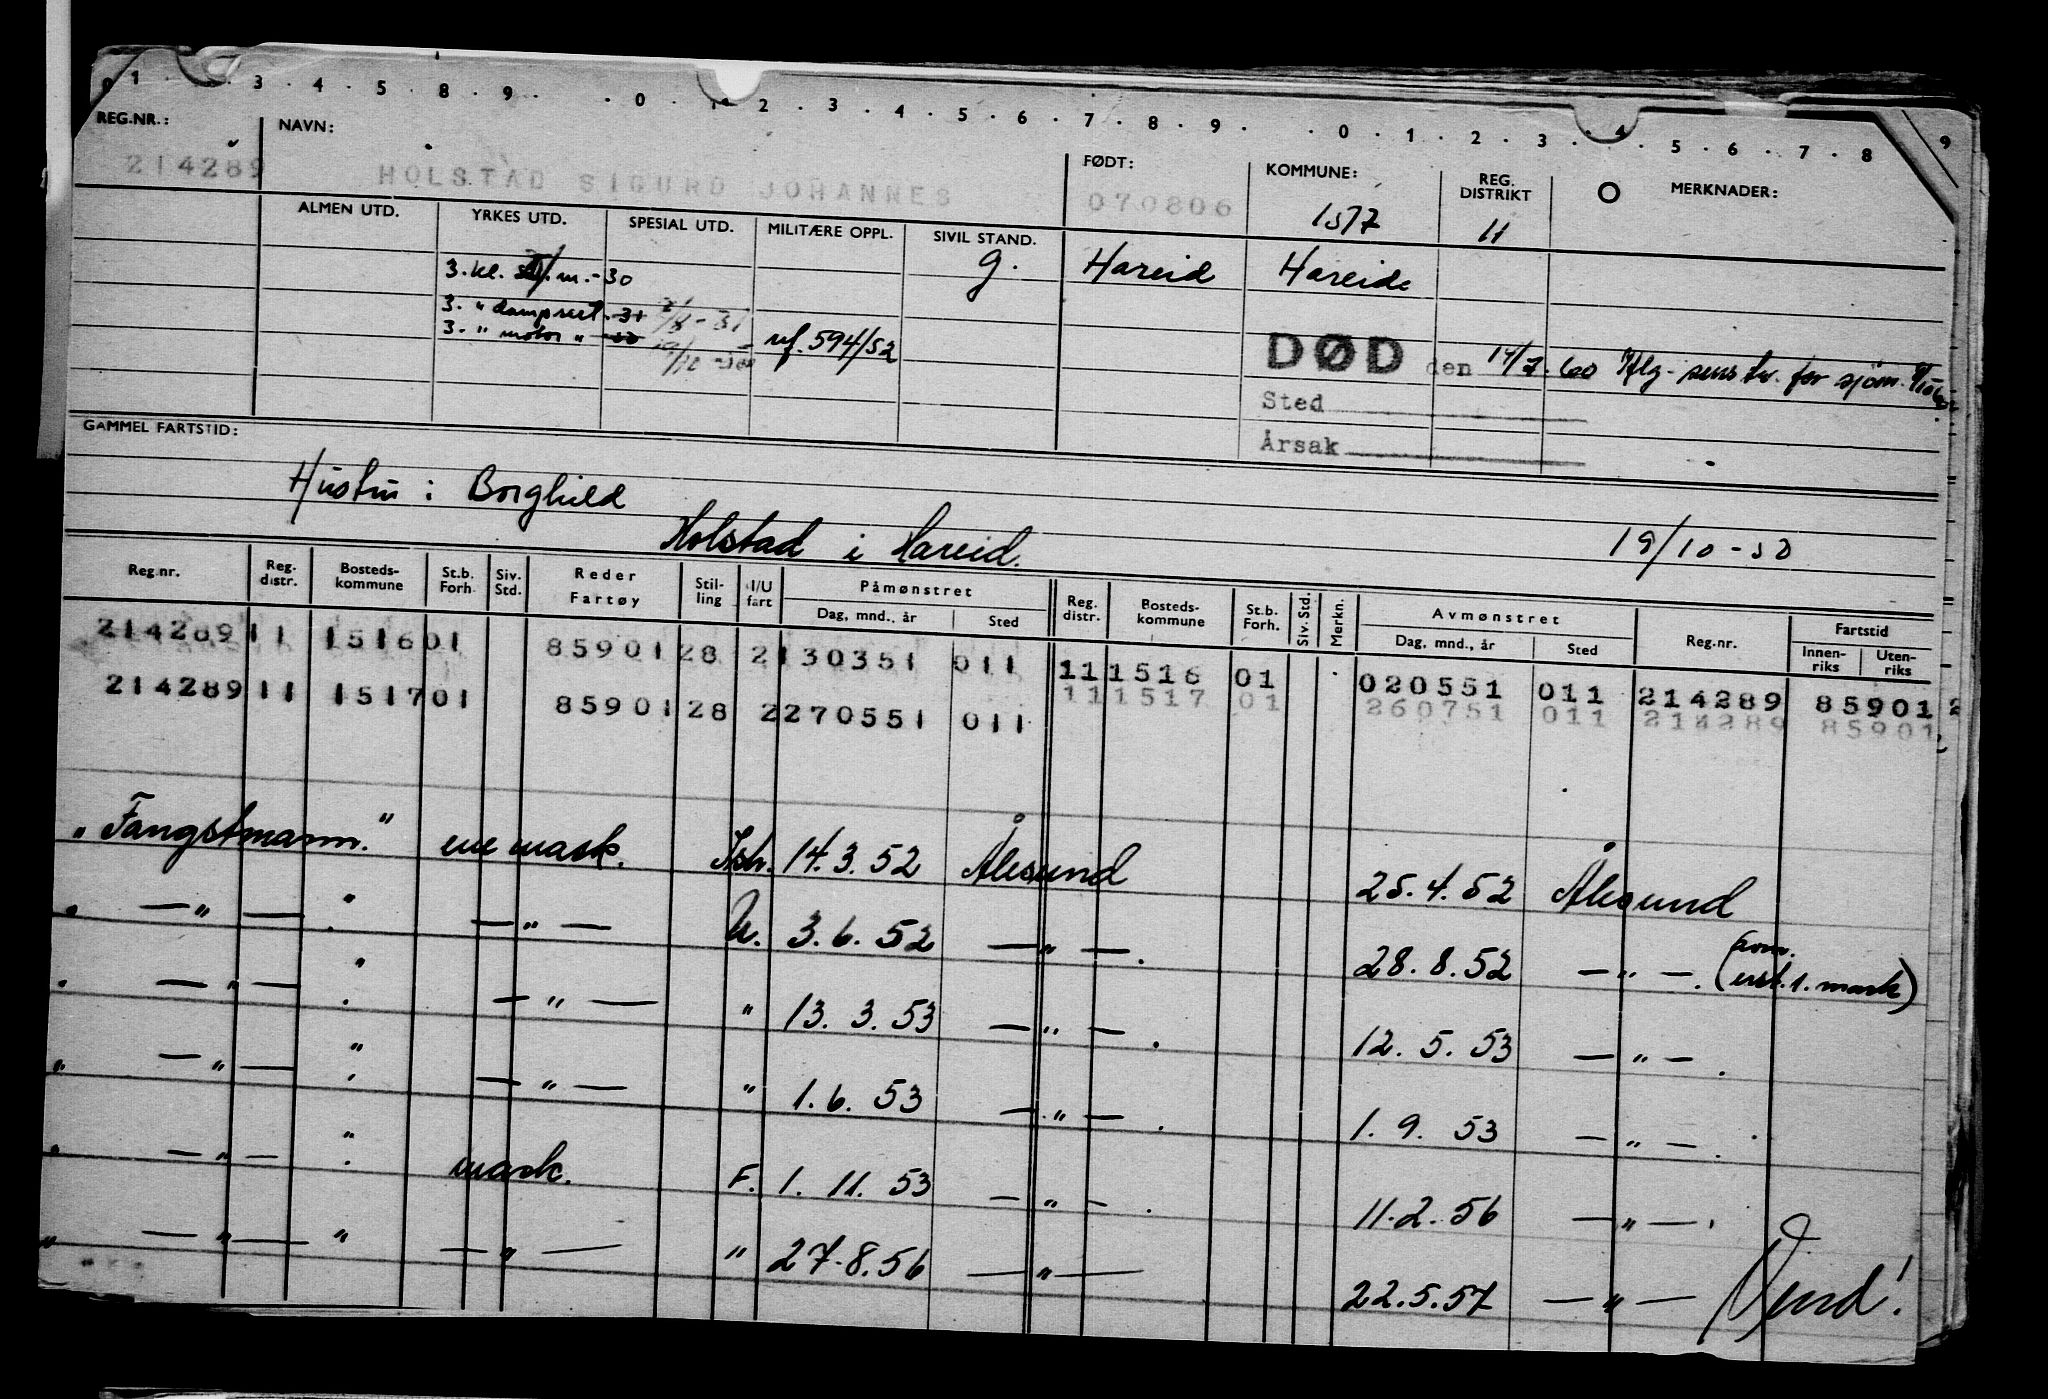 0 1 . . 3 . 4 . 5 . 8 . 9 . . 0 . 1 . 2 . 3 . 4 . 5 . 6 . 7 . 8 . 9 . . 0 . 1 . 2 . 3 . 4 . 5 . 6 . 7 . 8 9
REG.NR.: NAVN: FØDT: KOMMUNE: REG. DISTRIKT MERKNADER:
214289 HOLSTAD SIGURD JOHANNES 070806 1517 11
ALMEN UTD. YRKES UTD. SPESIAL UTD. MILITÆRE OPPL. SIVIL STAND.
3. kl. m. - 30 g. Hareid Hareid
3. " dampsert. 31 2/8 - 31
3. " motor " 30 uf. 594/52
DØD den 14/7. 60 Flg. for sjøm.
Sted
Årsak
GAMMEL FARTSTID:
Hustru : Borghild
Holstad i Hareid. 19/10 - 50
Reg.nr. Reg. distr. Bosteds- kommune St.b. Forh. Siv. Std. Reder Fartøy Stil- ling I/U fart Påmønstret Dag, mnd., år Sted Reg. distr. Bosteds- kommune St.b. Forh. Siv. Std. Merkn. Avmønstret Dag, mnd., år Sted Reg.nr. Fartstid Innen- riks Uten- riks
214289 11 1516 01 85901 28 2 130351 011 11 1516 01 020551 011 214289 85901 2
214289 11 1517 01 85901 28 2 270551 011 11 1517 01 260751 011 214289 85901 2
"Fangstmann." ene mask. Ish. 14.3.52 Ålesund 25.4.52 Ålesund
" — " — " — " — U. 3.6.52 — " —. 28.8.52 — " —. (avm. 1. mask)
" — " — " — " — " 13.3.53 — " —. 12.5.53 — " —.
" — " — " — " — " 1.6.53 — " —. 1.9.53 — " —.
" — " — " mask. F. 1.11.53 — " —. 11.2.56 — " —.
" — " — " — " — " 27.8.56 — " — 22.5.57 — " — Vend!